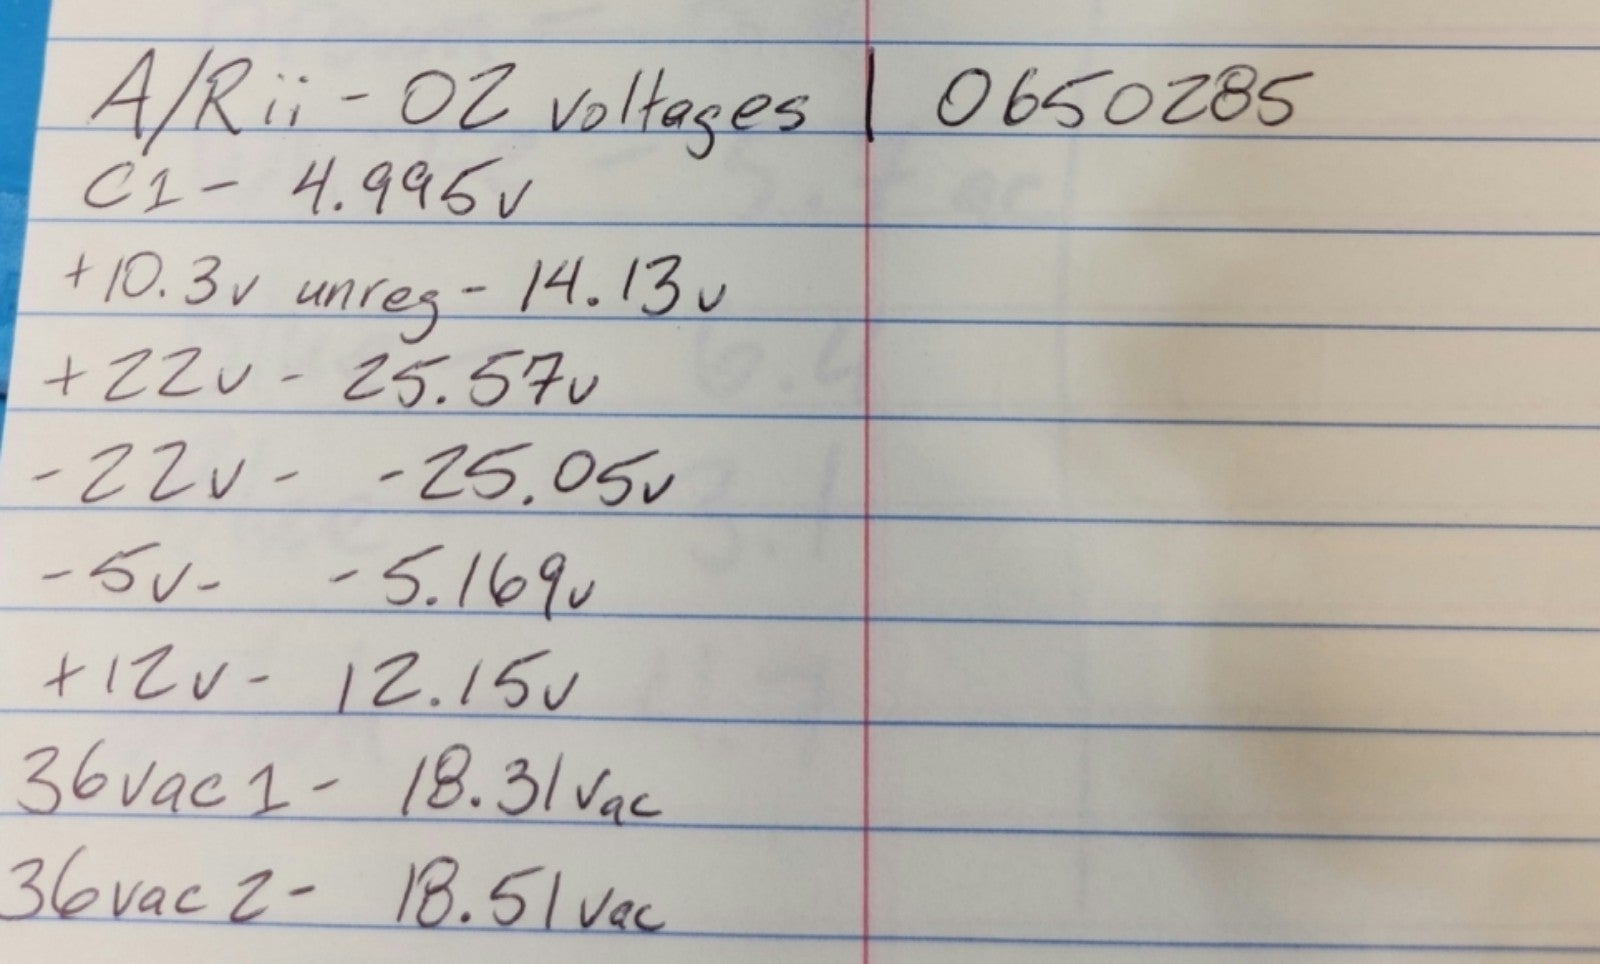 A/Rii - 02 voltages | 0650285
C1 - 4.995v
+10.3v unreg - 14.13v
+22v - 25.57v
-22v - -25.05v
-5v- -5.169v
+12v - 12.15v
36vac 1 - 18.31 vac
36vac 2 - 18.51 vac